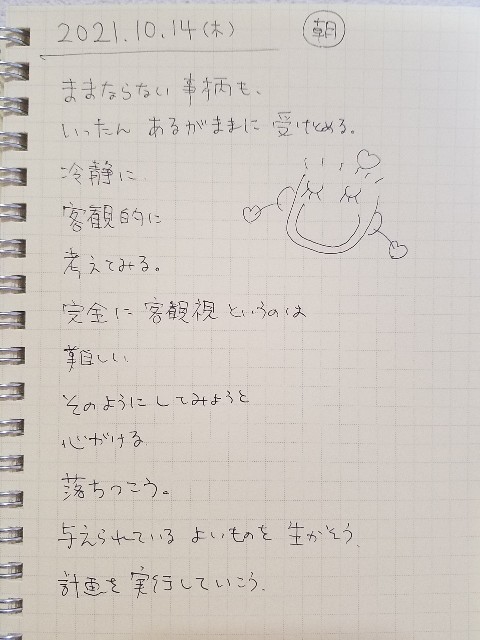 2021.10.14(木) 朝
ままならない事柄も、
いったん あるがままに 受けとめる。
冷静に
客観的に
考えてみる。
完全に客観視というのは
難しい
そのようにしてみようと
心がける
落ちつこう。
与えられている よいものを 生かそう、
計画を実行していこう、